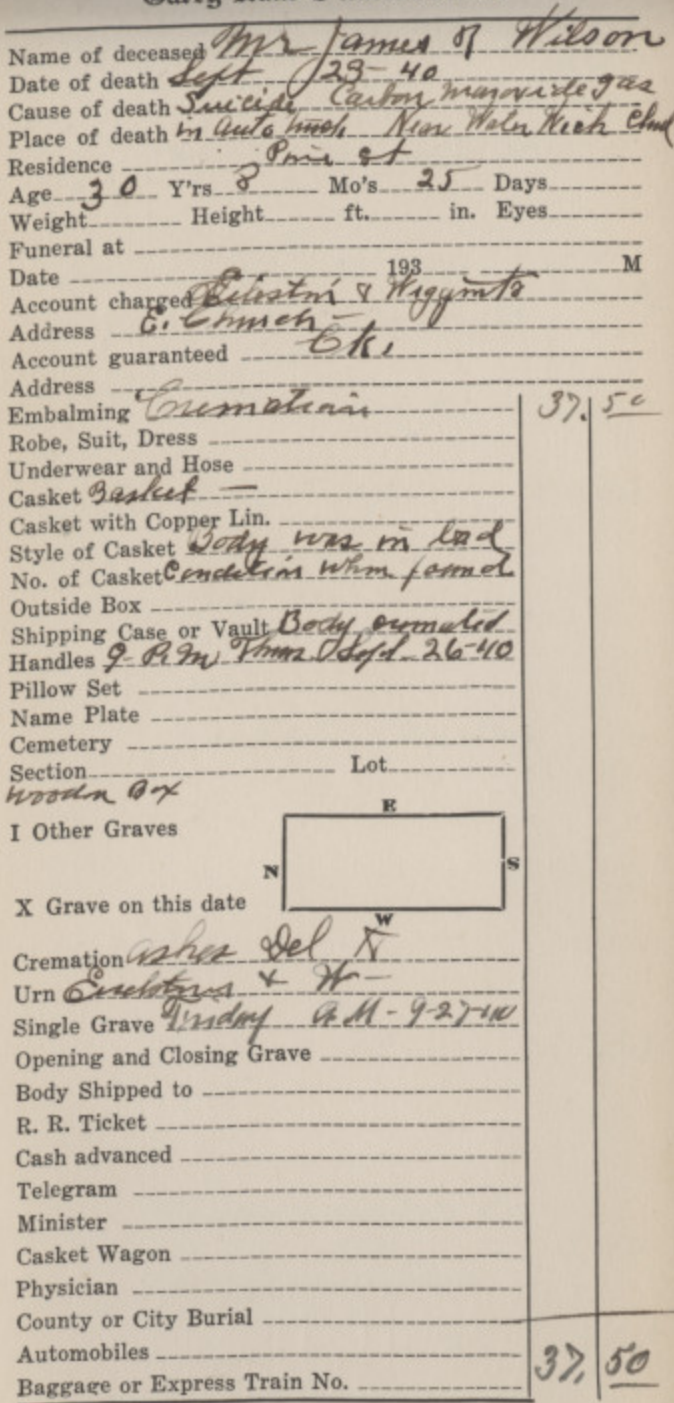 Name of deceased Mr James Wilson
Date of death Sept 23-40
Cause of death Suicide Carbon monoxide gas
Place of death in auto Near
Residence St
Age 30 Y'rs 8 Mo's 25 Days
Weight Height ft. in. Eyes
Funeral at
Date 193 M
Account charged &
Address E. Church
Account guaranteed
Address
Embalming Cremation 37. 50
Robe, Suit, Dress
Underwear and Hose
Casket Basket -
Casket with Copper Lin.
Style of Casket Body was in bad
No. of Casket Condition when found
Outside Box
Shipping Case or Vault Body cremated
Handles 9- P.M Thurs Sept 26-40
Pillow Set
Name Plate
Cemetery
Section Lot
wooden Box
I Other Graves
E
N S
X Grave on this date
W
Cremation ashes Del
Urn & W-
Single Grave Friday A.M- 9-27-40
Opening and Closing Grave
Body Shipped to
R. R. Ticket
Cash advanced
Telegram
Minister
Casket Wagon
Physician
County or City Burial
Automobiles 37. 50
Baggage or Express Train No.